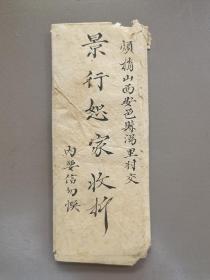 烦捎山西安邑縣湯里村交
景行恕家收拆
内要信勿悞